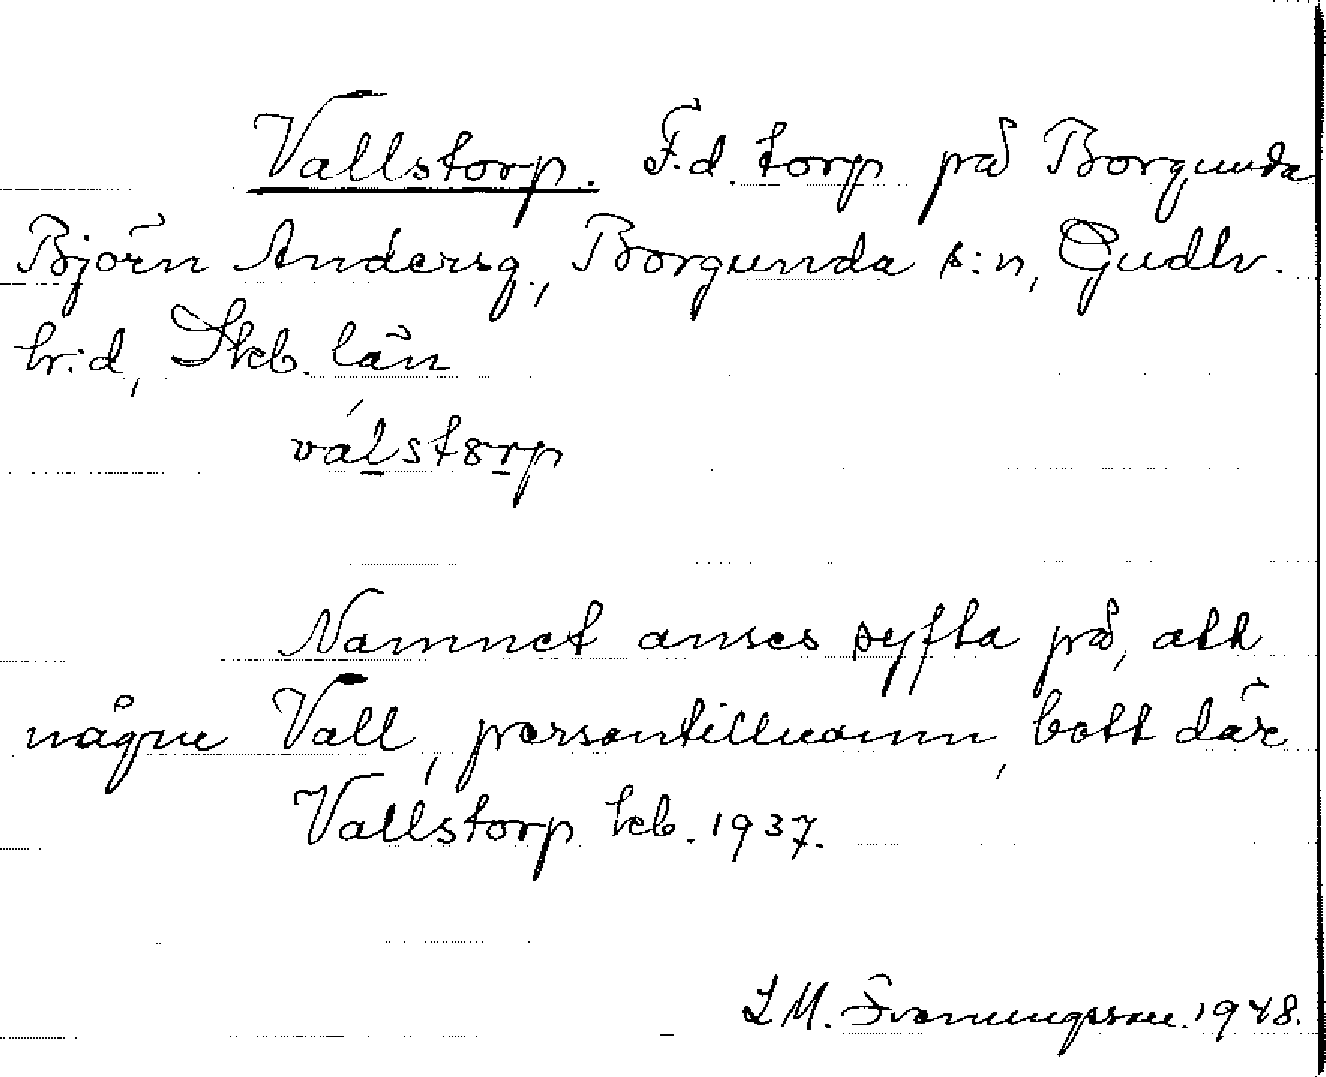 Vallstorp. F.d. torp på Borgunda
Björn Andersg., Borgunda s:n, Gudh.
hr:d, Skb. län
válstɜrp
Namnet anses syfta på, att
någne Vall, persontillnamn, bott där
Vallstorp kb. 1937.
L M. Svenungsson. 1948.